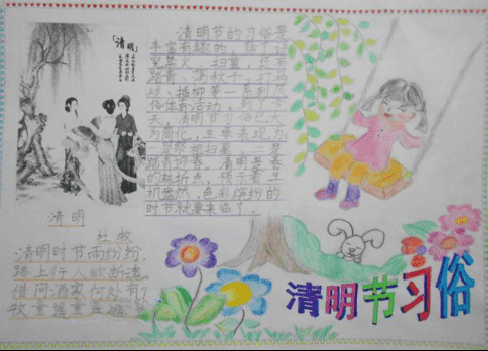 「清明」
清明
杜牧
清明时节雨纷纷,
路上行人欲断魂。
借问酒家何处有?
牧童遥
清明节的习俗是
丰富有趣的,除了讲
究禁火、扫墓,还有
踏青、荡秋千、打马
球、插柳等一系列风
俗体育活动。到了今
天,清明节习俗已大
为简化,主要表现为,
一是祭祖扫墓,二是
踏青迎春,清明是春
的转折点,预示着生
机盎然、色彩缤纷的
时节就要来临了。
清明节习俗